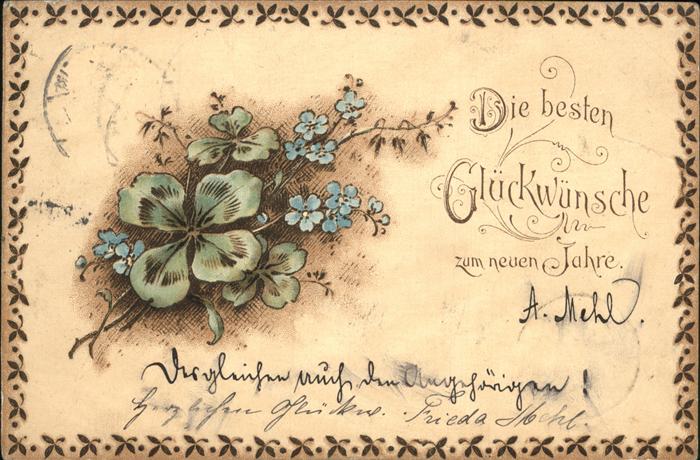 Die besten
Glückwünsche
zum neuen Jahre.
A. Mehl.
Desgleichen auch den Angehörigen!
Herzlichen Glückw. Frieda Mehl.